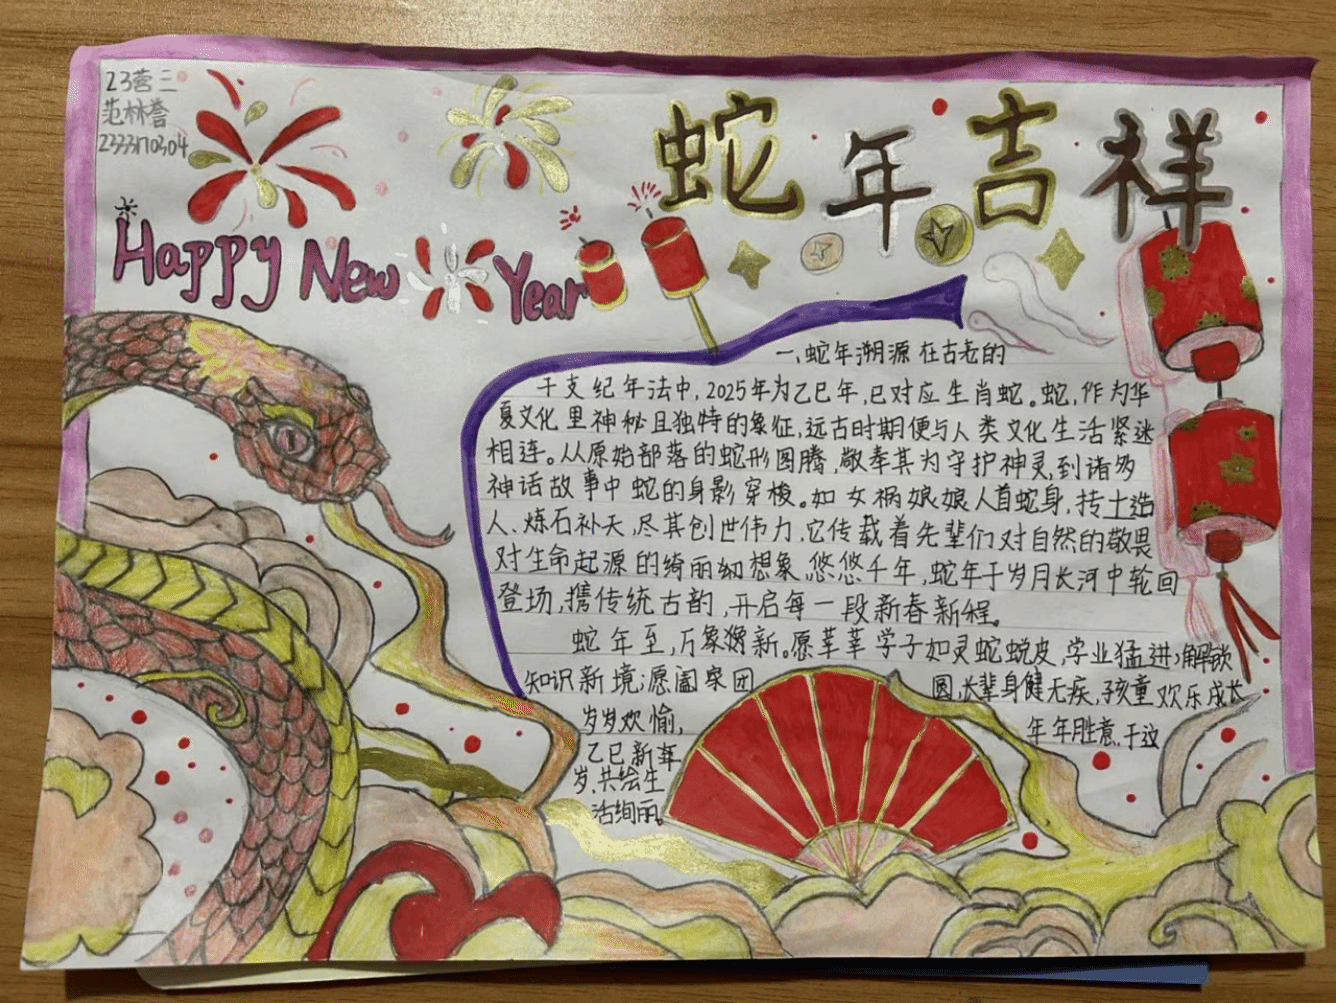 23营三
范林誉
2333170304
蛇年吉祥
Happy New Year
一、蛇年溯源 在古老的
干支纪年法中，2025年为乙巳年，巳对应生肖蛇。蛇，作为华
夏文化里神秘且独特的象征，远古时期便与人类文化生活紧迷
相连。从原始部落的蛇形图腾，敬奉其为守护神灵，到诸多
神话故事中蛇的身影穿梭。如女祸娘娘人首蛇身，抟土造
人、炼石补天，尽其创世伟力，它传载着先辈们对自然的敬畏
对生命起源的绮丽幻想象，悠悠千年，蛇年于岁月长河中轮回
登场，携传统古韵，开启每一段新春新程。
蛇年至，万象换新。愿莘莘学子如灵蛇蜕皮，学业猛进，解锁
知识新境；愿阖家团圆，长辈身健无疾，孩童欢乐成长
岁岁欢愉，年年胜意，于这
乙巳新年
岁，共绘生
活绚丽。